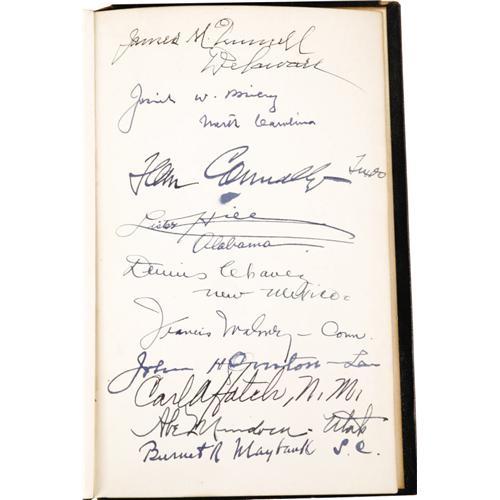 James M. Tunnell
Delaware
Josiah W. Bailey
North Carolina
Tom Connally Texas
Lister Hill
Alabama
Dennis Chavez
New Mexico
Francis Maloney - Conn.
John H Overton - La
Carl A Hatch, N.M.
Abe Murdock - Utah
Burnet R Maybank S.C.